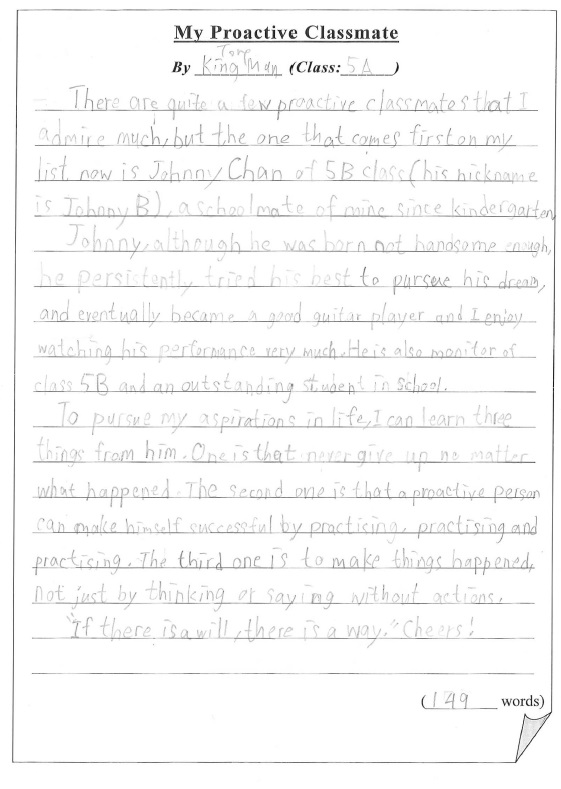 My Proactive Classmate
Tong
By King Man (Class: 5A)
There are quite a few proactive classmates that I
admire much, but the one that comes first on my
list now is Johnny Chan of 5B class (his nickname
is Johnny B), a schoolmate of mine since kindergarten.
Johnny, although he was born not handsome enough,
he persistently tried his best to pursue his dream,
and eventually became a good guitar player and I enjoy
watching his performance very much. He is also monitor of
class 5B and an outstanding student in school.
To pursue my aspirations in life, I can learn three
things from him. One is that never give up no matter
what happened. The second one is that a proactive person
can make himself successful by practising, practising and
practising. The third one is to make things happened,
not just by thinking or saying without actions.
"If there is a will, there is a way." Cheers!
(149 words)